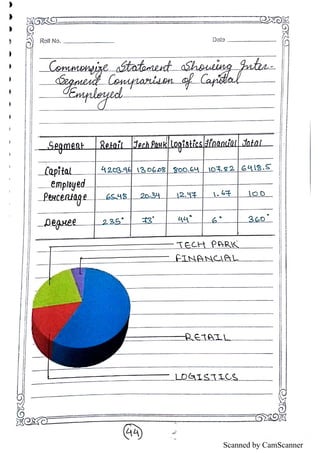 Roll No.
Date
Commonsize Statement Showing Inter-
Segment Comparison of Capital
Employed
Segment Retail Tech Park Logistics Financial Total
Capital employed 4203.96 1306.08 800.64 107.82 6418.5
Percentage 65.48 20.34 12.47 1.67 100
Degree 235° 73° 44° 6° 360°
TECH PARK
FINANCIAL
RETAIL
LOGISTICS
44
Scanned by CamScanner